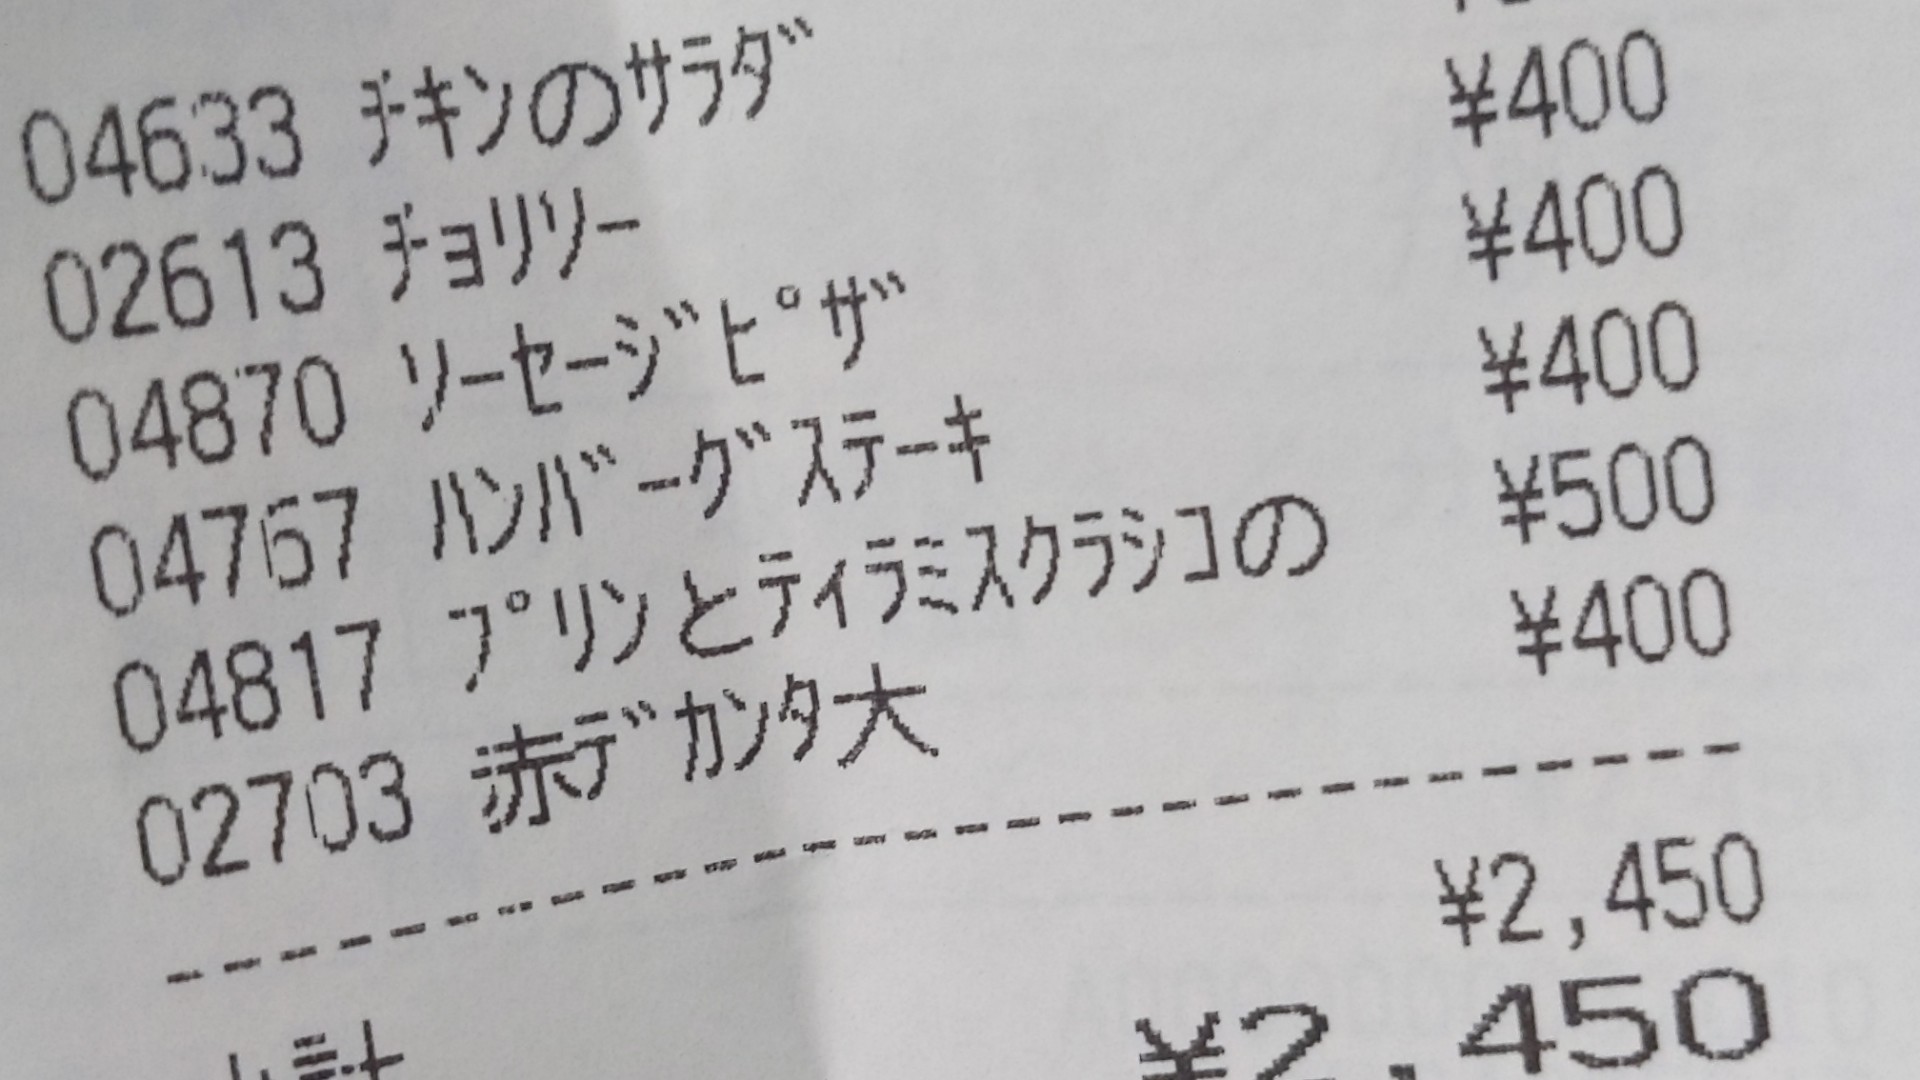 04633 ﾁｷﾝのｻﾗﾀﾞ
02613 ﾁｮﾘｿｰ ¥400
04870 ｿｰｾｰｼﾞﾋﾟｻﾞ ¥400
04767 ﾊﾝﾊﾞｰｸﾞｽﾃｰｷ ¥400
04817 ﾌﾟﾘﾝとﾃｨﾗﾐｽｸﾗｼｺの ¥500
02703 赤ﾃﾞｶﾝﾀ大 ¥400
¥2,450
¥2,450